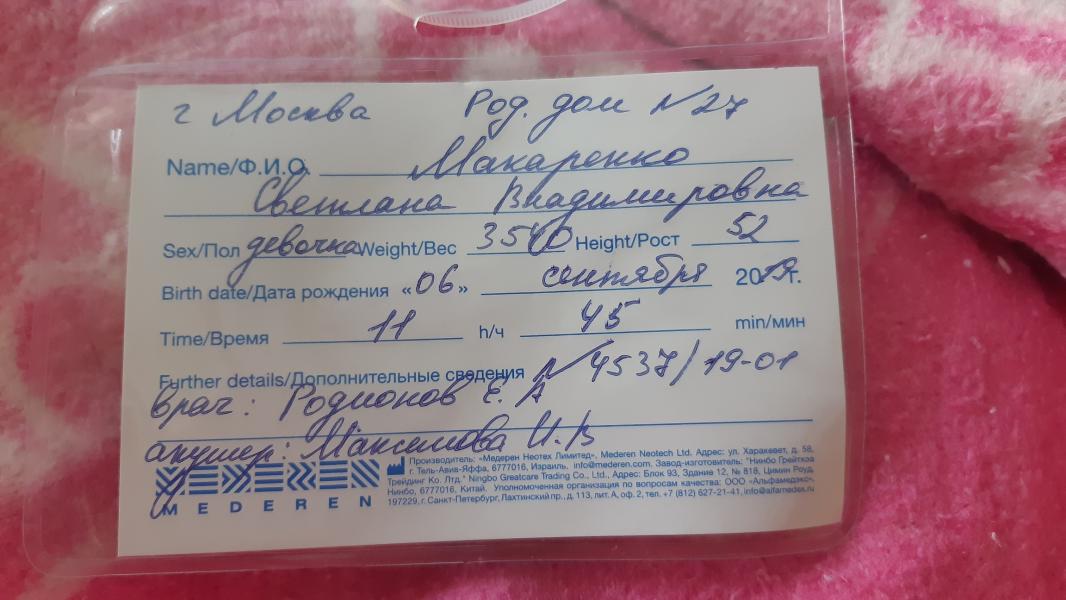 г Москва Род. дом №27
Name/Ф.И.О. Макаренко
Светлана Владимировна
Sex/Пол девочка Weight/Вес 3500 Height/Рост 52
Birth date/Дата рождения «06» сентября 2019г.
Time/Время 11 h/ч 45 min/мин
Further details/Дополнительные сведения №4537/19-01
врач: Родионов Е. А
акушер: Максимова И. В
Производитель: «Медерен Неотех Лимитед», Mederen Neotech Ltd. Адрес: ул. Харакевет, д. 58,
г. Тель-Авив-Яффа, 6777016, Израиль. info@mederen.com. Завод-изготовитель: "Нинбо Грейткэа
Трейдинг Ко. Лтд." Ningbo Greatcare Trading Co., Ltd., Адрес: Блок 93, Здание 12, № 818, Цимин Роуд,
Нинбо, 6777016, Китай. Уполномоченная организация по вопросам качества: ООО «Альфамедэкс»,
197229, г. Санкт-Петербург, Лахтинский пр., д. 113, лит. А, оф. 2, тел. +7 (812) 627-21-41, info@alfamedex.ru
MEDEREN